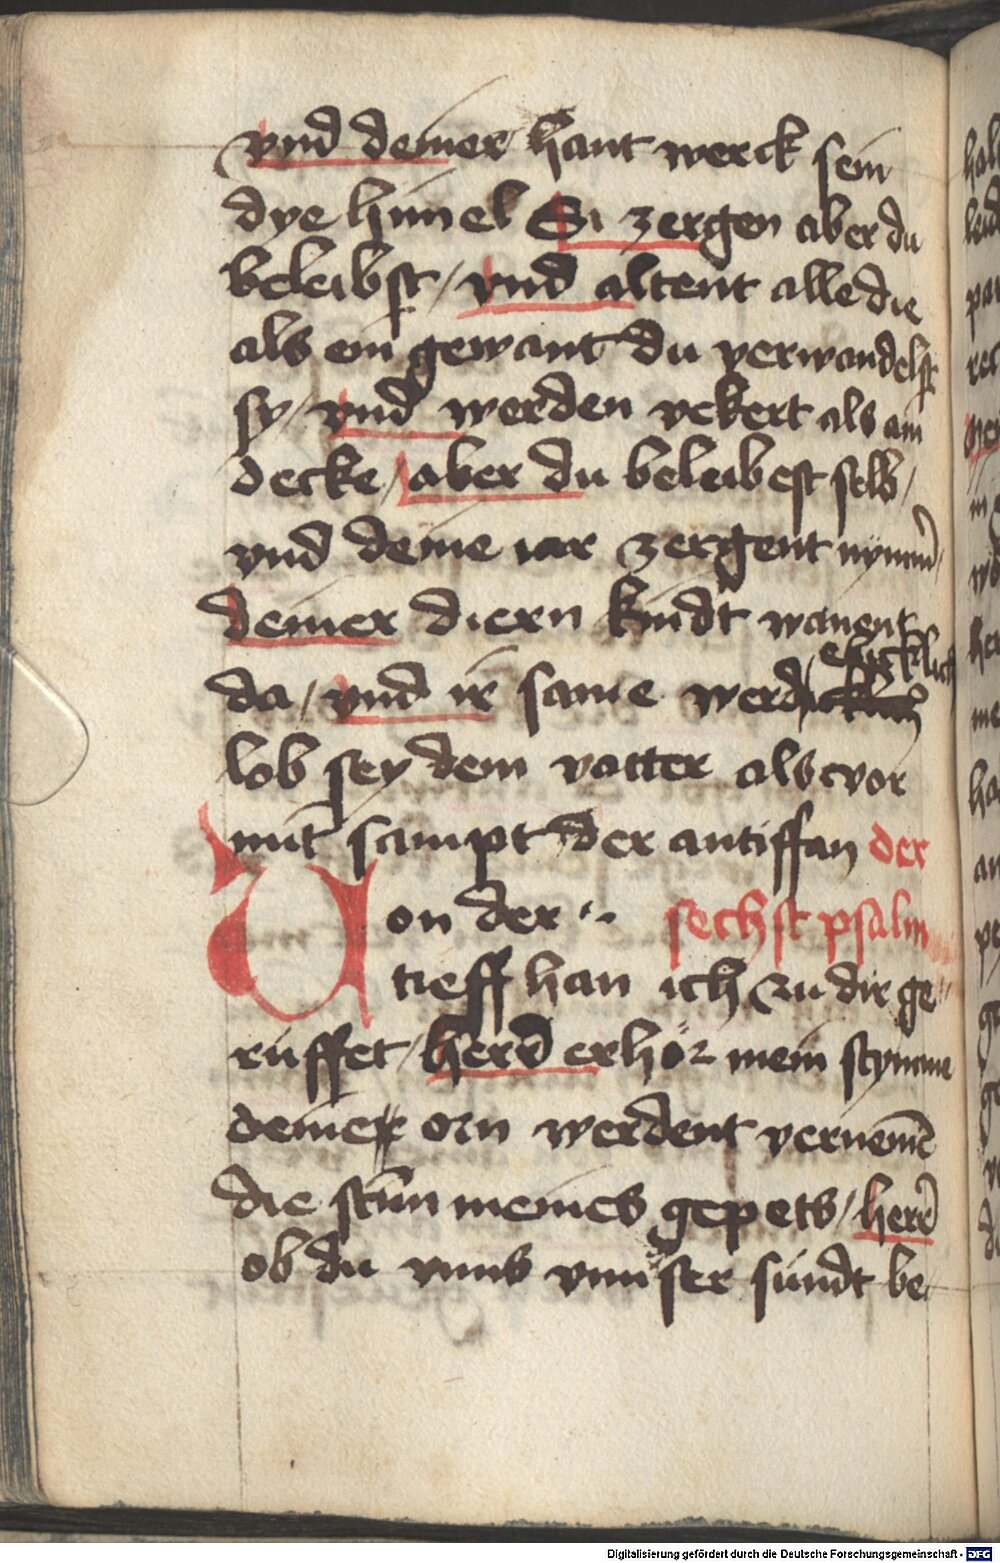 vnd deiner hant werck sein
dye himel Si zergen aber du
beleibst / vnd altent alle die
als ein gewant du verwandelst
sy / vnd werden vckert als ain
decke / aber du beleibest selb /
vnd deine iar zergent nymmer
deiner diern kindt wanent
da / vnd ir same werd ewicklich
lob sey dem vatter als vor
mit sampt der antiffan der
Von der sechst psalm
tieff han ich zu dir ge
rüffet / herr erhör mein stymme
deine orn werdent vernemen
die stim meines gepets / herr
ob du vnns vnnser sündt be
Digitalisierung gefördert durch die Deutsche Forschungsgemeinschaft - DFG